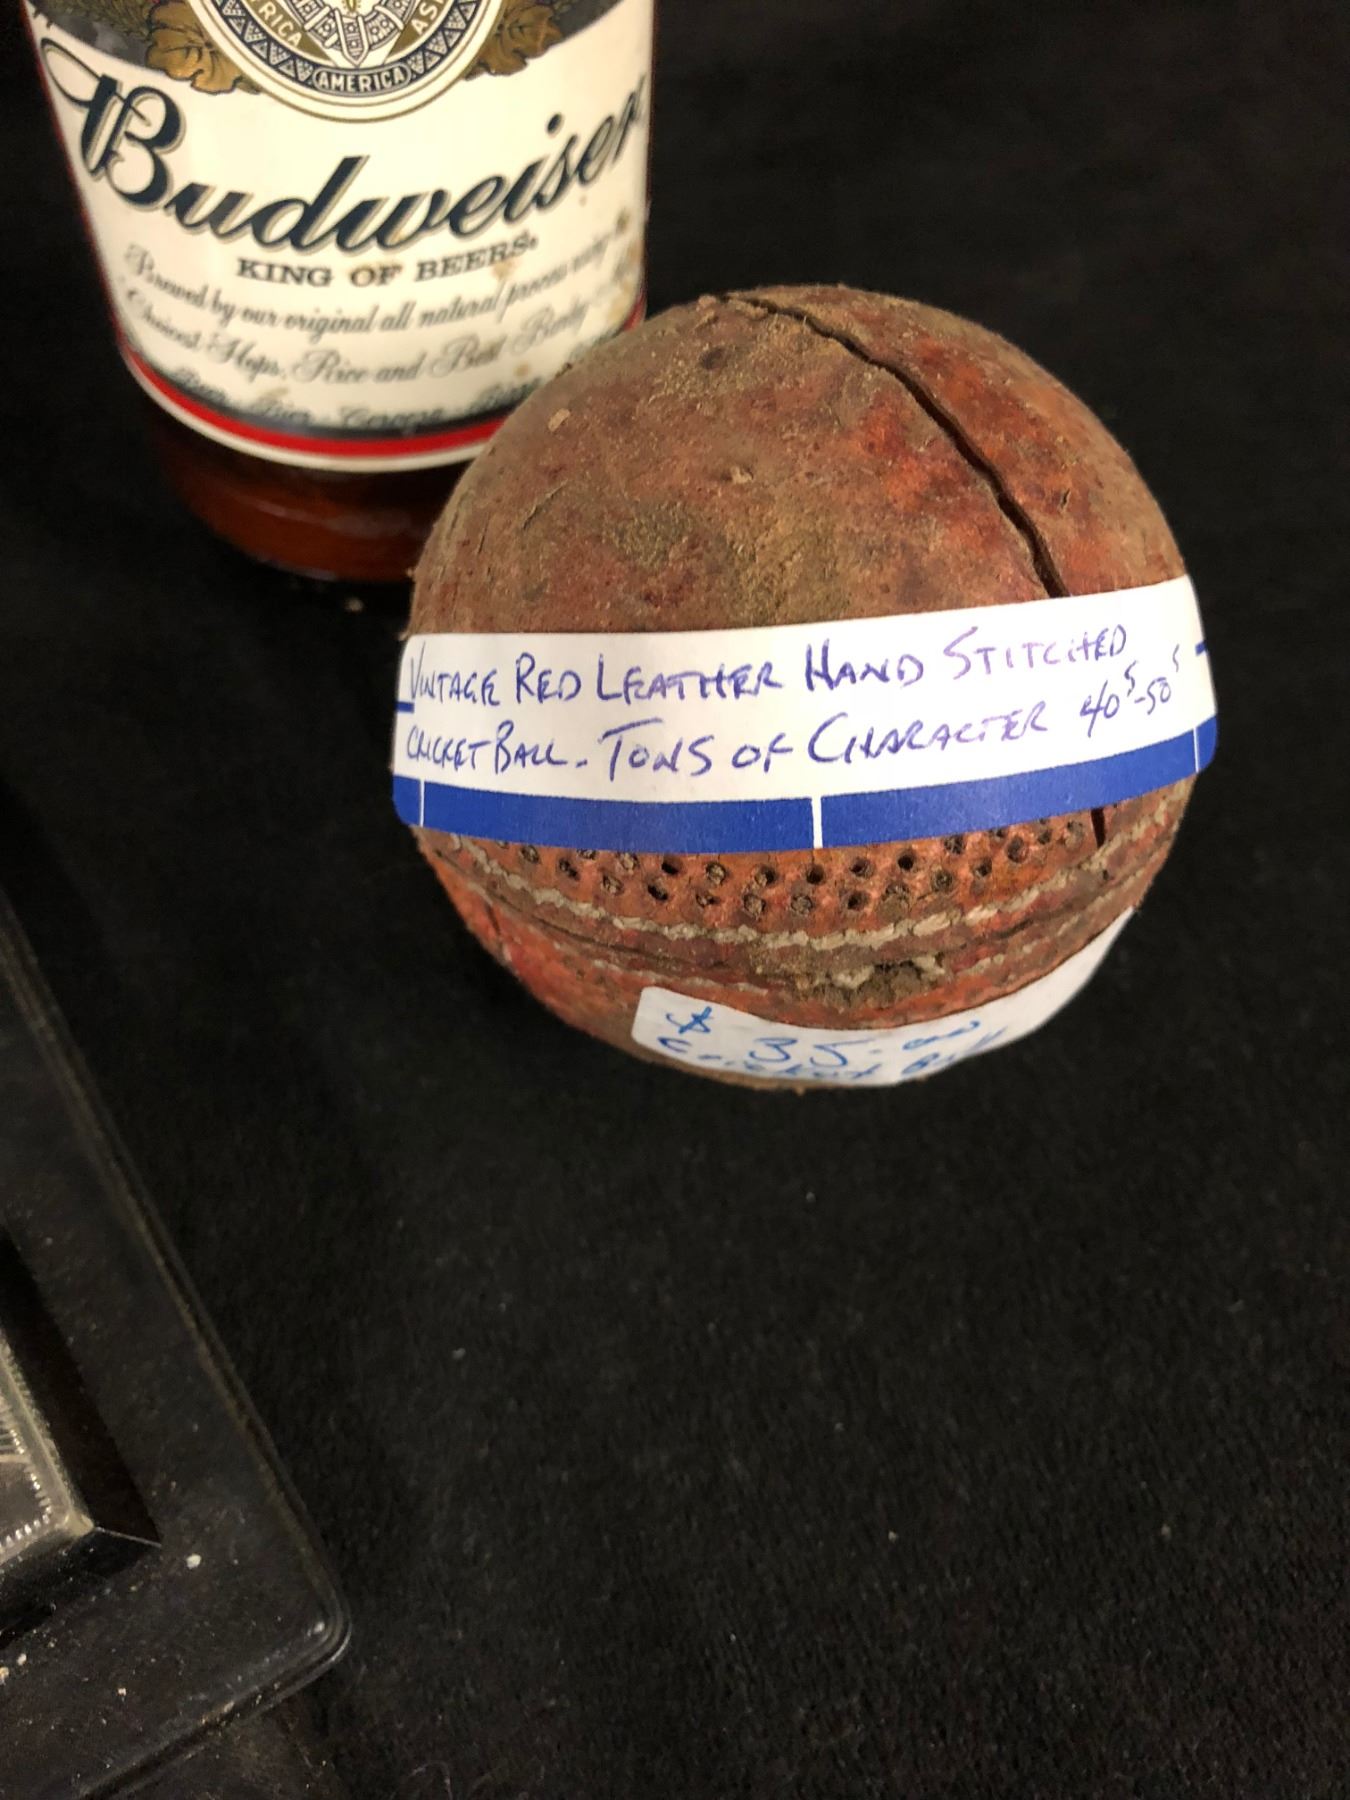 AFRICA
AMERICA
Budweiser
KING OF BEERS.
Brewed by our original all natural process using the
Choicest Hops, Rice and Best Barley
VINTAGE RED LEATHER HAND STITCHED
CRICKET BALL - TONS OF CHARACTER 40s-50s
$ 35.00
Cricket Ball